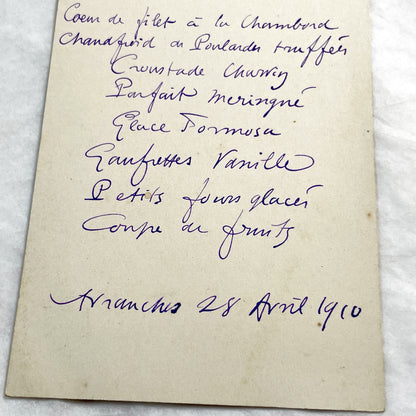 Coeur de filet à la Chambord
Chaudfroid de Poulardes truffées
Croustade
Parfait meringué
Glace Formosa
Gaufrettes Vanille
Petits fours glacés
Coupe de fruits
Avranches 28 Avril 1910